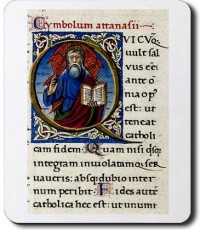 Cymbolum attanasii
VICVQ
uult sal
uus eẽ: 
ante õ
nia op⁹
est: ut
teneat
catholi
cam fidem: Quam nisi q̃sq̃
integram inuiolatamq̃ ser
uauerit: absq̃ dubio inter
num peribit: Fides autẽ
catholica hec est: ut unum